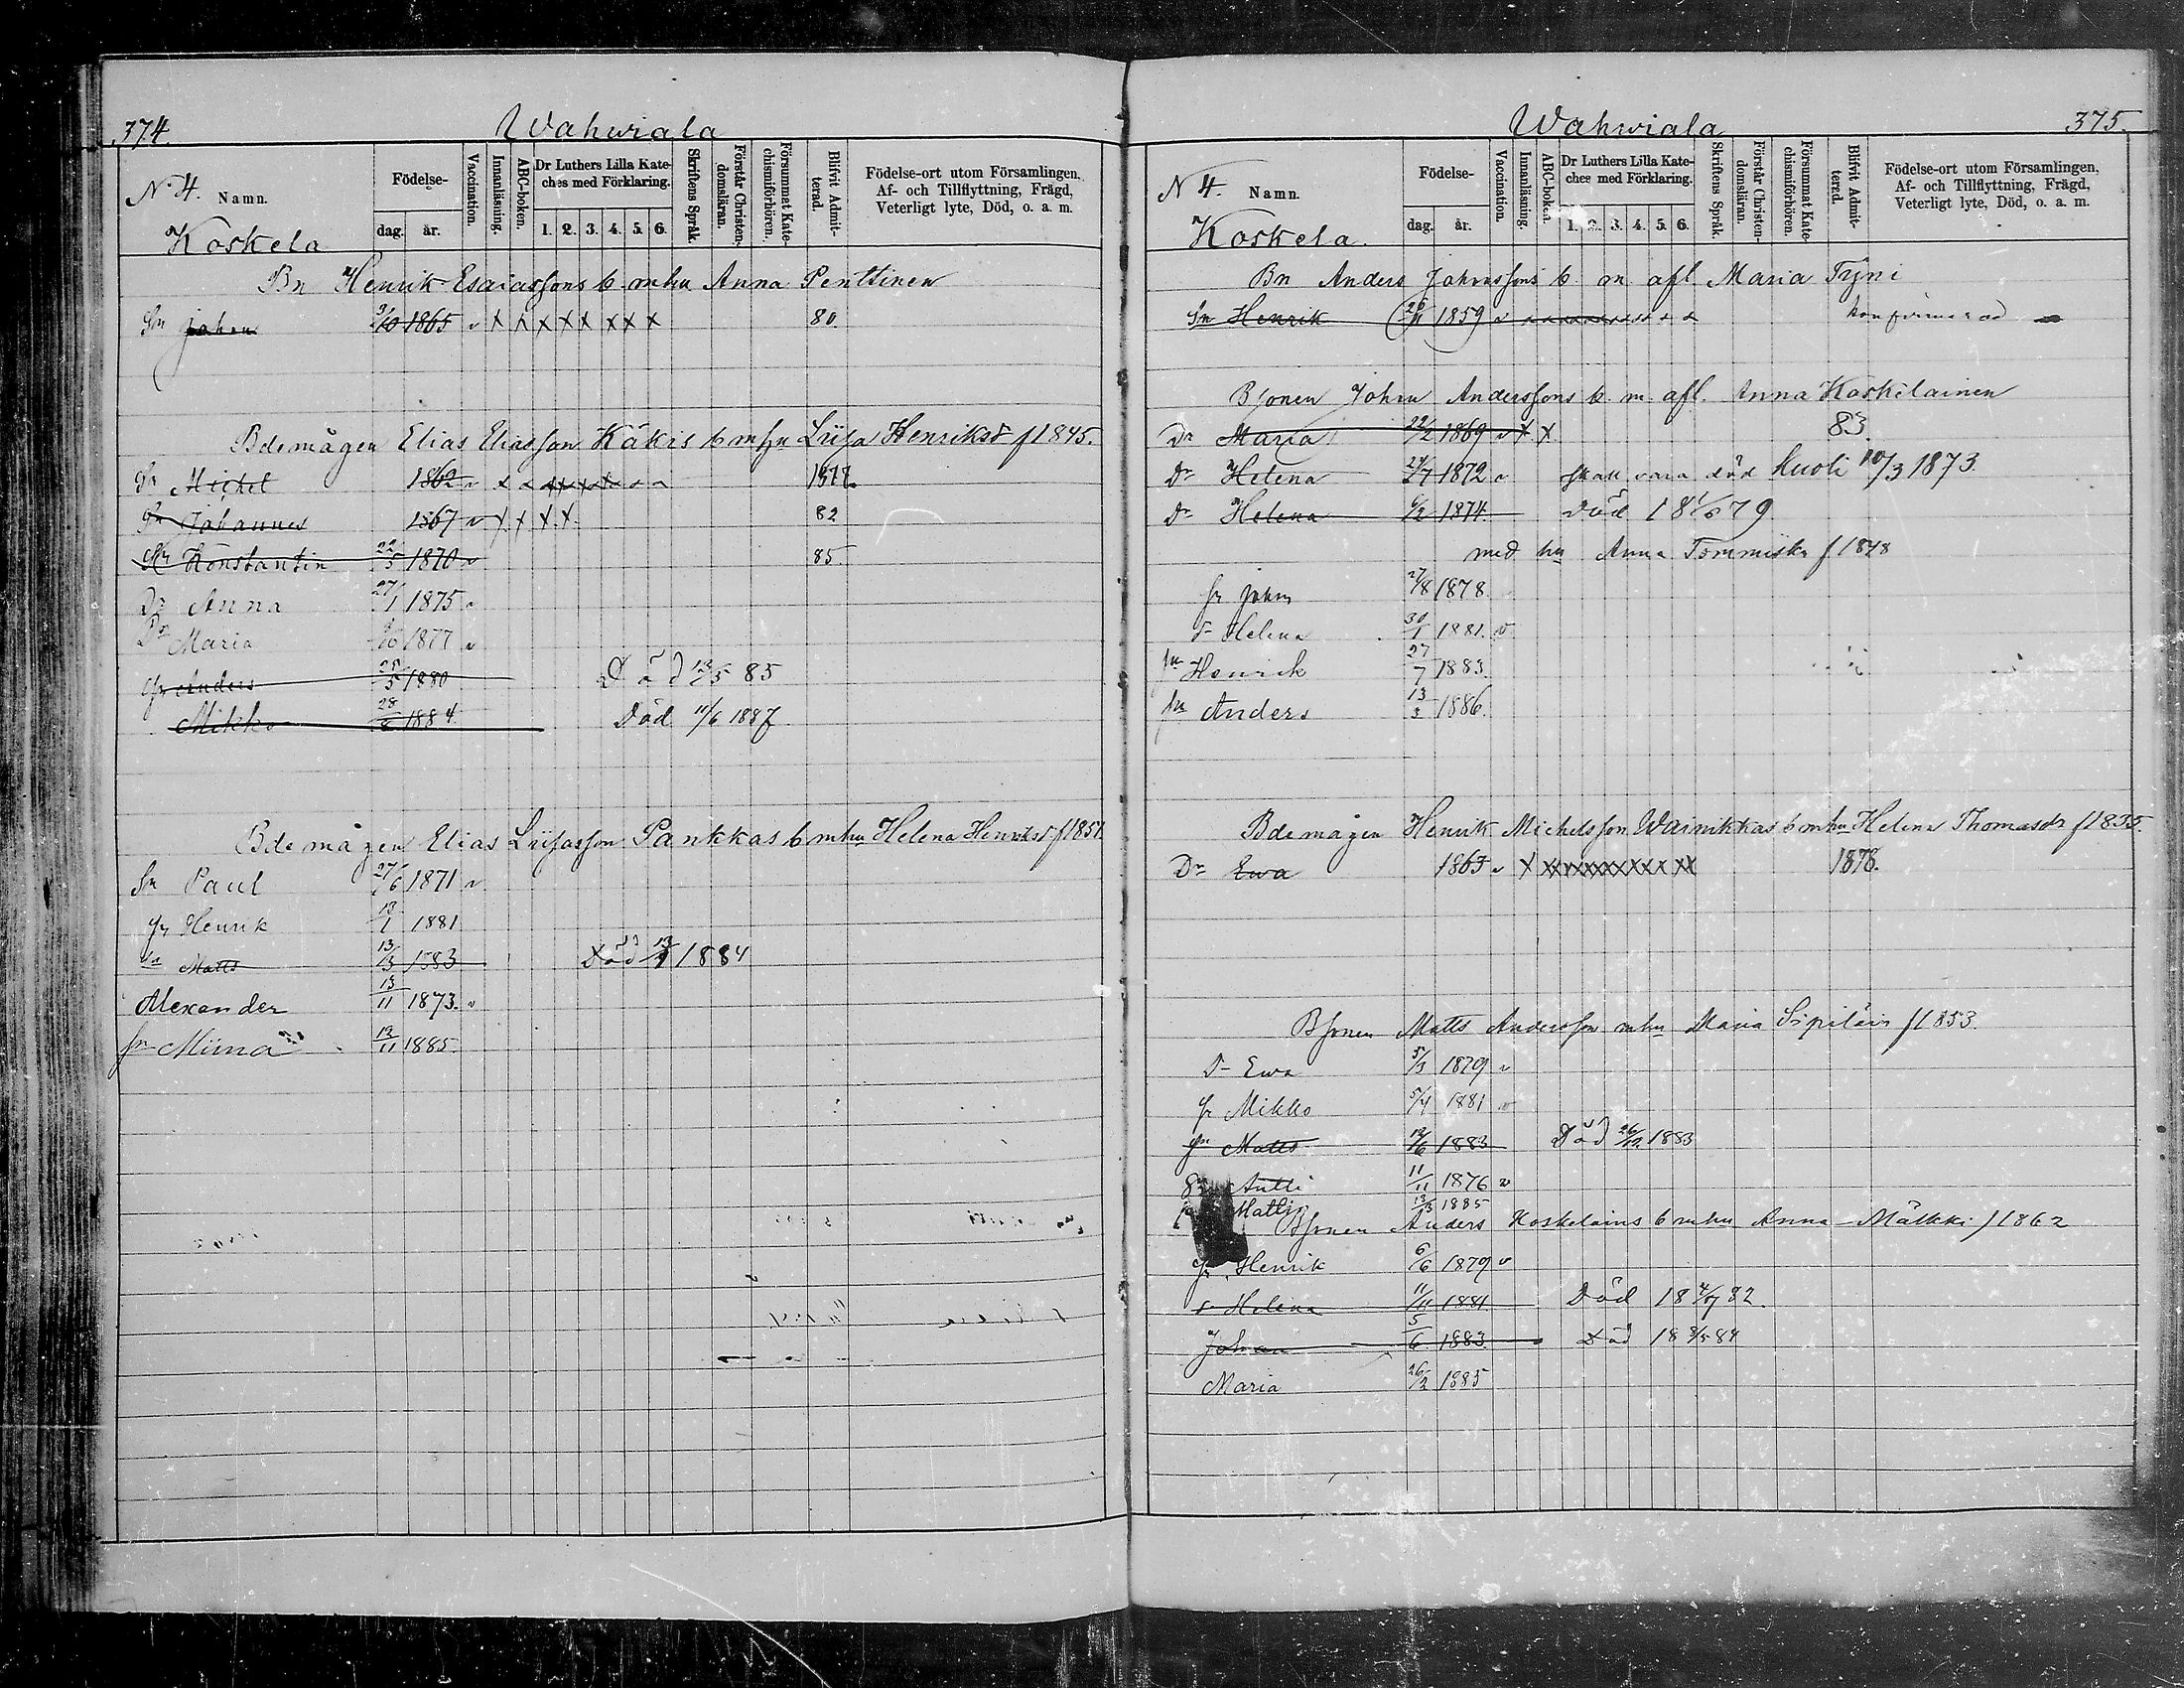 374.
Wahwiala
N. 4. Namn.
Födelse-
dag. år.
Vaccination.
Innanläsning.
ABC-boken.
Dr Luthers Lilla Kate-
ches med Förklaring.
1. 2. 3. 4. 5. 6.
Skriftens Språk.
Förstår Christen-
domsläran.
Försummat Kate-
chismiförhören.
Blifvit Admit-
terad.
Födelse-ort utom Församlingen,
Af- och Tillflyttning, Frägd,
Veterligt lyte, Död, o. a. m.
Koskela
Bn Henrik Esaiassons b. mhu Anna Penttinen
Sn Johan 3/10 1865 v x x x x x x x x 80.
Bdemågen Elias Eliasson Käkis b mhu Liisa Henriksd f 1845.
Sn Michel 1862 v x x x x x x 1877.
Sn Johannes 1867 v x x x x 82
Sn Konstantin 22/5 1870 v 85.
Dr Anna 27/1 1875 v
Dr Maria 1877 v
Sn Anders 25/5 1880 Död 13/5 85
Mikko 28/8 1884 Död 11/6 1887
Bdemågen Elias Liisasson Pankkas b mhu Helena Henriksd f 1851
Sn Paul 27/6 1871 v
Sn Henrik 13/1 1881
Sn Matts 13/3 1883 Död 1884
Alexander 13/11 1873. v
Miina 12/11 1885.
375.
Wahwiala
N 4. Namn.
Födelse-
dag. år.
Vaccination.
Innanläsning.
ABC-boken.
Dr Luthers Lilla Kate-
ches med Förklaring.
1. 2. 3. 4. 5. 6.
Skriftens Språk.
Förstår Christen-
domsläran.
Försummat Kate-
chismiförhören.
Blifvit Admit-
terad.
Födelse-ort utom Församlingen,
Af- och Tillflyttning, Frägd,
Veterligt lyte, Död, o. a. m.
Koskela.
Bn Anders Johanssons b. m. afl. Maria Tyni
Sn Henrik 1859 v x x x x x x x x x konfirmerad
Bsonen Johan Anderssons b. m. afl. Anna Koskelainen
Dr Maria 22/2 1869 v x x 83.
Dr Helena 24/7 1872 v skall vara död Kuoli 10/3 1873.
Dr Helena 6/2 1874. Död 18 1/6 79
med hu Anna Tommiska f. 1848
Sn Johan 27/8 1878.
Dr Helena 30/1 1881. v
Sn Henrik 27/7 1883.
Sn Anders 13/3 1886.
Bdemågen Henrik Michelsson Wainikkas b mhu Helena Thomasdr f 1835.
Dr Ewa 1863 v x x x x x x x x x x 1878.
Bsonen Matts Andersson mhu Maria Sipiläin f 1853.
Dr Ewa 5/3 1879 v
Sn Mikko 5/4 1881 v
Sn Matts 12/6 1883 Död 1883
Sn Antti 11/11 1876 v
Matti 13/3 1885
Bsonen Anders Koskelains b mhu Anna Mälkki f 1862
Sn Henrik 6/6 1879 v
Dr Helena 11/11 1881 Död 18 4/7 82.
Johan 5/6 1883. Död 18 8/5 84
Maria 26/2 1885